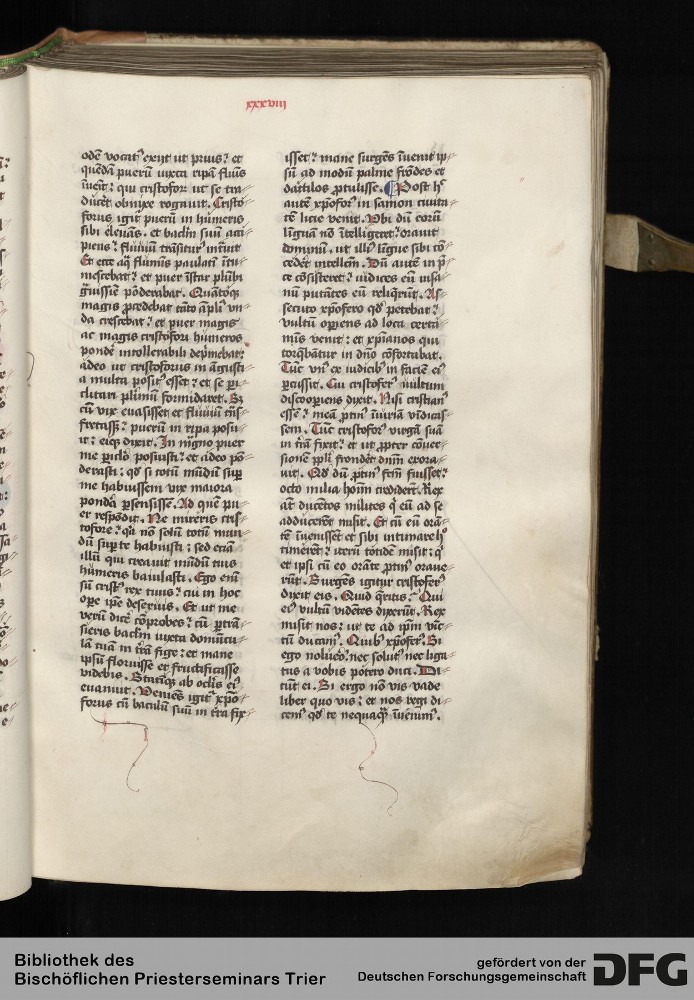 xxxviii
odē vocat᷒ exijt ut prius: et
quēdā puerū iuxta ripā fluīs
īuēit: qui cristofor̄ ut se tra-
duceͭ obnixe rogauit. Cristo-
forus igit᷑ puerū in hūmeris
sibi eleuās. et baclm̄ suū acci-
piens: fluuiū trāsitur᷒ īntͣuit
Et ecce aq̄ flumīs paulatī ītu-
mescebat: et puer īstar plūbi
gͣuissie pōderabat. Quātoq̄;
magis ꝓcedebat tāto āpli᷒ vn-
da crescebat: et puer magis
ac magis cristofori hūmeros
pondē intollerabili dep̄mebat:
adeo ut cristoforus in āgusti
a multa posit᷒ esset: et se pi-
clitari pl̄imū formidaret. Sꝫ
cū vix euasisset et fluuiū tͣns-
fretasꝫ: puerū in ripa posu-
it: eiq; dixit. In mͣgno puer
me piclo posuisti: et adeo pō-
derasti: qd̄ si totū mūdū sup
me habuissem vix maiora
pondā ꝑsensissē. Ad quē pu-
er respōdit. Ne mireris cris-
tofore: qꝛ nō solū totū mun-
dū sup te habuisti: sed eciā
illū qui creauit mūdū tuis
hūmeris baiulasti. Ego enī
sū crist᷒ rex tuus: cui in hoc
oꝑe ip̄e deseruis. Et ut me
verū dicē cōprobes: cū ꝑtrā-
sieris baclm̄ iuxta domūcu-
lā tuā in tͣra fige: et mane
ipsū floruisse et fructificasse
videbis. Statimq; ab oclīs ei᷒
euanuit. Veniēs igit᷑ xp̄o-
forus cū baculū suū in tͣra fix-
isset: mane surgēs īuenit ip-
sū ad modū palme frōdes et
dactilos ꝓtulisse. Post h᷒
autē xp̄ofor᷒ in samon ciuita-
tē licie venit. Vbi dū eorū
līguā nō ītelligeret: orauit
dominū. ut illi᷒ līgue sibi cō-
cedēt intellcm̄. Dū autē in p̄-
ce cōsisteret: iudices eū insa-
nū putātes eū reliq̄rūt. As-
secuto xp̄ofero qd̄ petebat:
vultū oꝑiens ad loca certā-
mīs venit: et xp̄ianos qui
torq̄bātur in dn̄o cōfortabat.
Tūc vn᷒ ex iudicib᷒ in faciē ei᷒
ꝑcussit. Cui cristofer᷒ vultum
discooꝑiens dixit. Nisi cristian᷒
essē: meā ꝓtin᷒ īiuriā vīdicas-
sem. Tūc cristofor᷒ virgā suā
in tͣra fixit: et ut ꝓpter cōuer-
sionē ppl̄i frondēt dn̄m exora-
uit. Qd̄ dū ꝓtin᷒ fcm̄ fuisset:
octo milia hoīm crediderūt. Rex
at̄ ducētos milites q̄ eū ad se
adducerēt misit. Et cū eū orā-
tē īuenissēt et sibi intimare h᷒
timerēt: iterū totidē misit: q̄
et ipsi cū eo orāte ꝓtin᷒ oraue-
rūt. Surgēs igitur cristofer᷒
dixit eis. Quid q̄ritis? Qui
ei᷒ vultū vidētes dixerūt. Rex
misit nos: ut te ad ip̄m vīc-
tū ducam᷒. Quib᷒ xp̄ofer᷒. Si
ego noluēo: nec solut᷒ nec liga-
tus a vobis potero duci. Di-
cūt ei. Si ergo nō vis vade
liber quo vis: et nos regi di-
cem᷒ qd̄ te nequaq̄; īuenim᷒.
Bibliothek des
Bischöflichen Priesterseminars Trier
gefördert von der
Deutschen Forschungsgemeinschaft
DFG